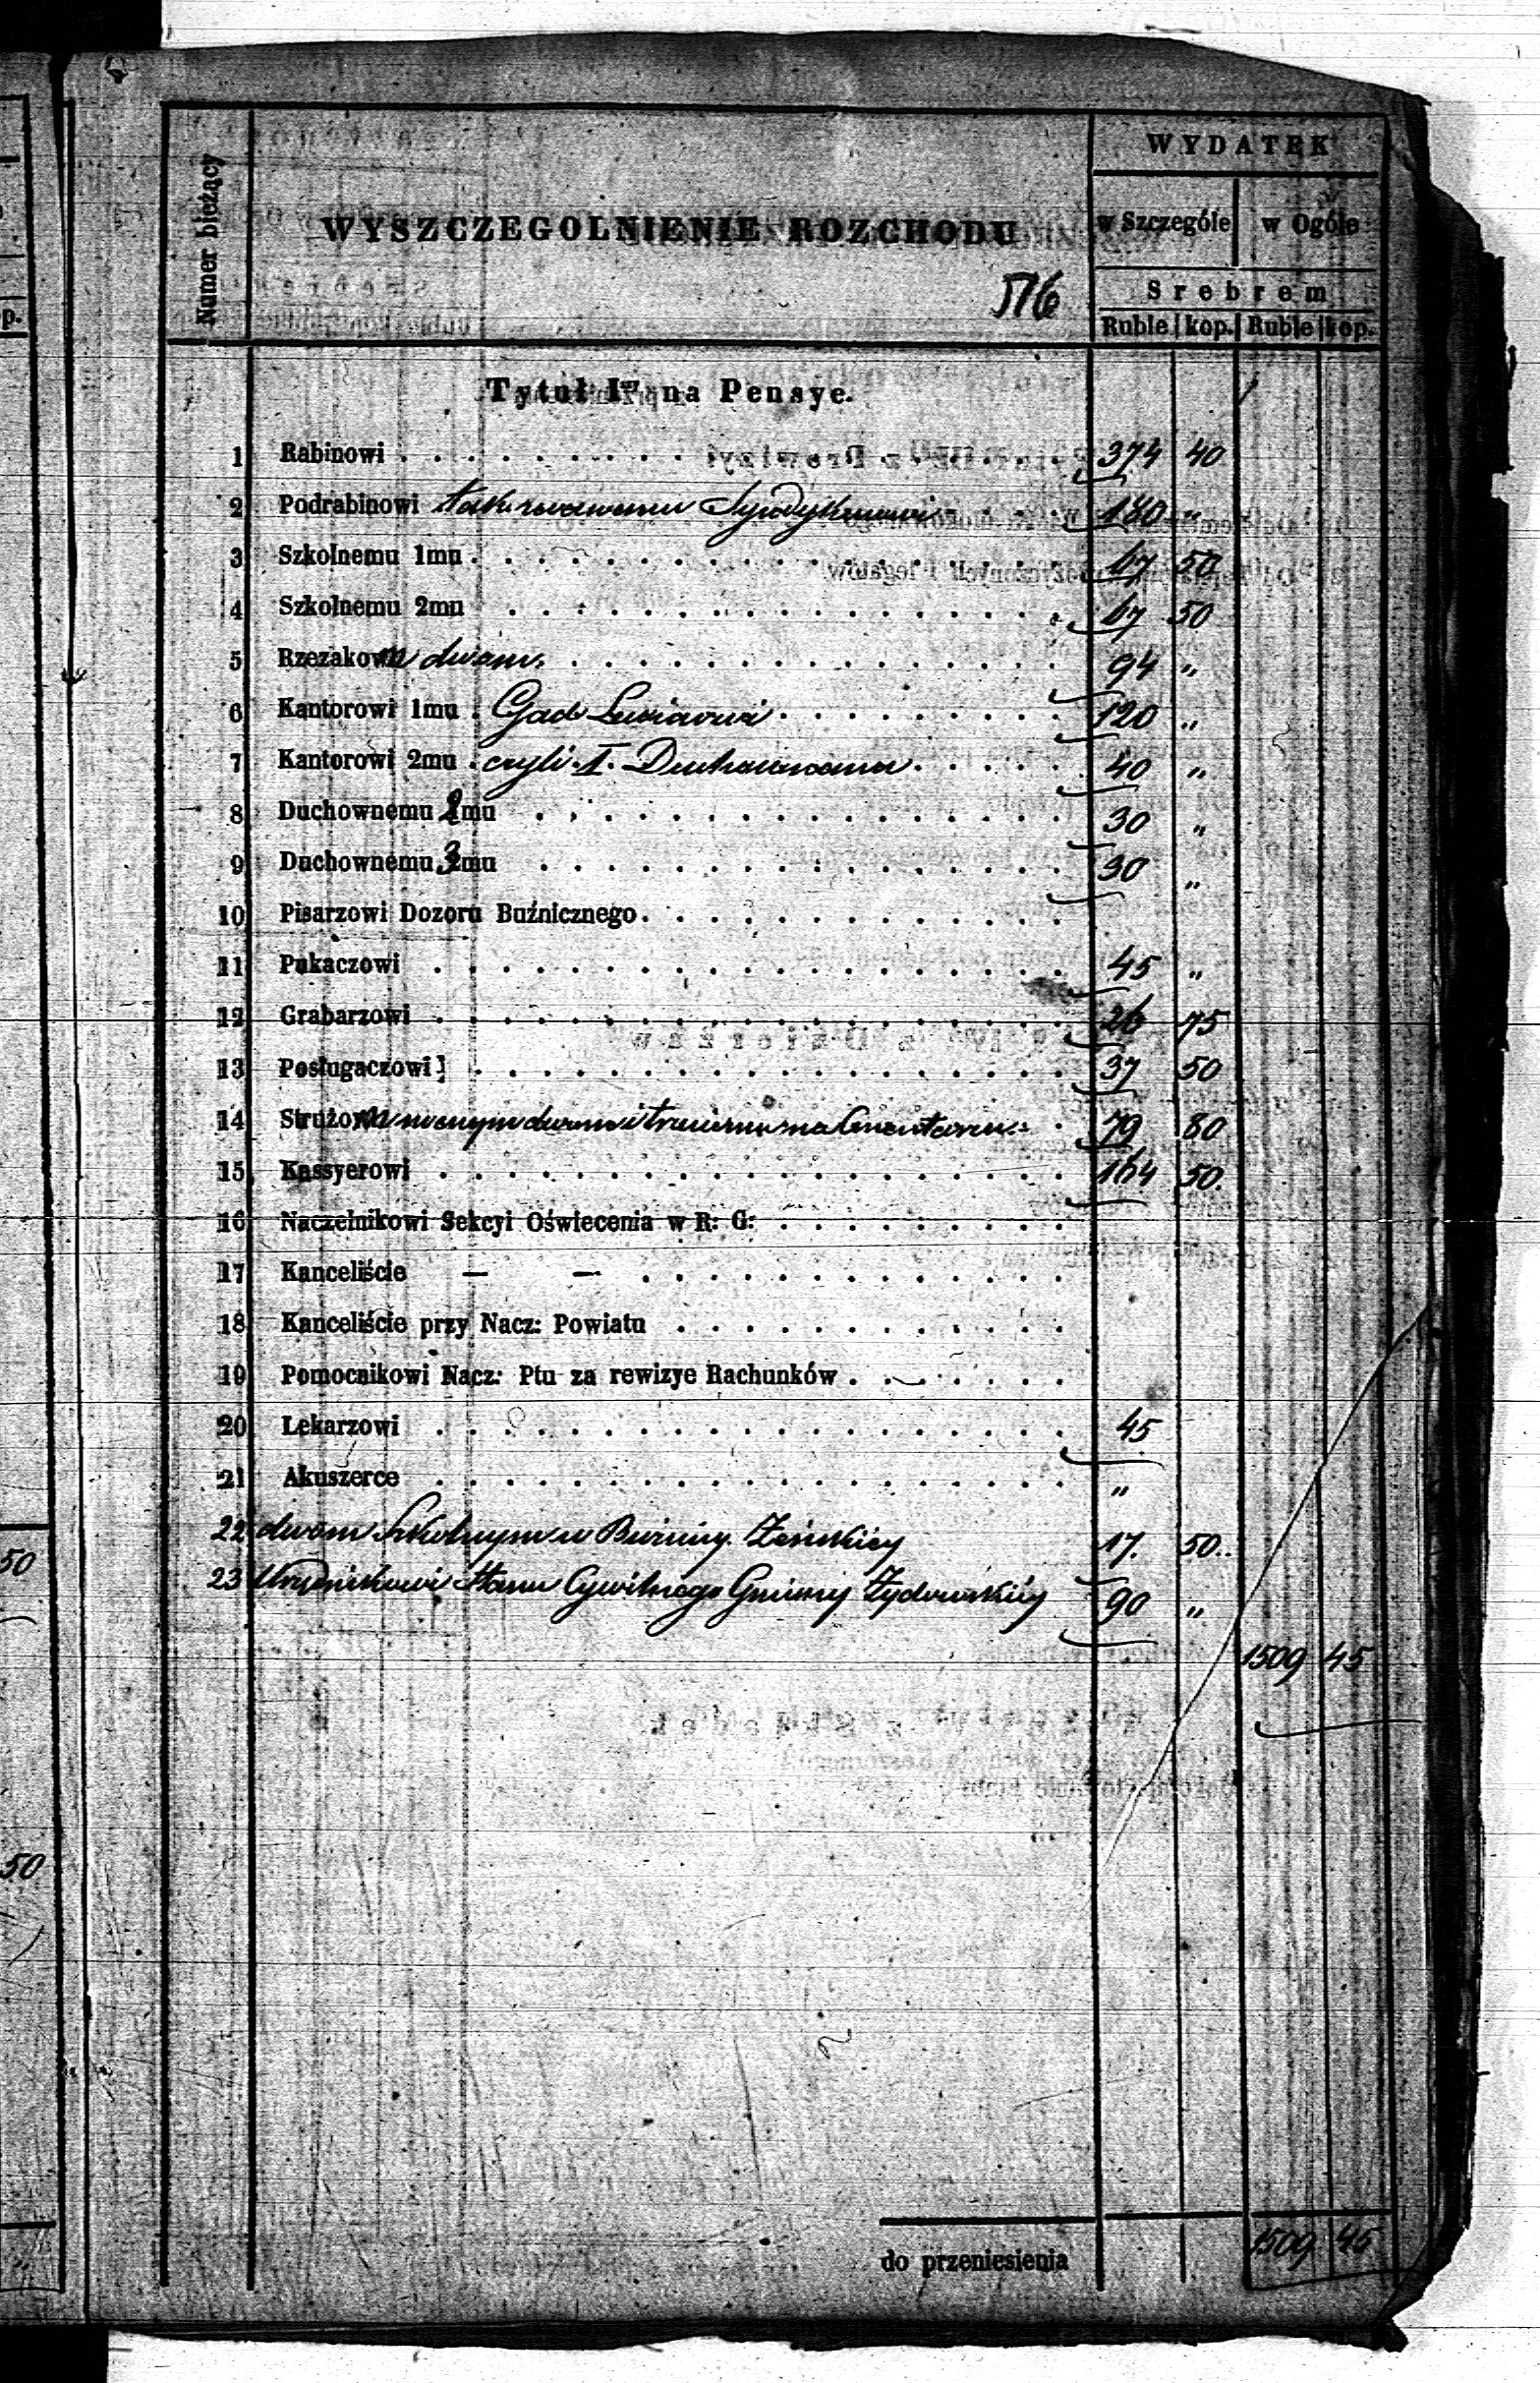 Numer bieżący
WYSZCZEGOLNIENIE ROZCHODU
WYDATEK
w Szczególe w Ogóle
516
Srebrem
Ruble kop. Ruble kop.
Tytuł I. na Pensye.
1 Rabinowi . . . . 374 40
2 Podrabinowi tak zwanemu Syndykusowi . . . . 180 "
3 Szkolnemu 1mu . . . . 67 50
4 Szkolnemu 2mu . . . . 67 50
5 Rzezakom dwom . . . . 94 "
6 Kantorowi 1mu . Gad . . . . 120 "
7 Kantorowi 2mu . czyli I. . . . . 40 "
8 Duchownemu 2mu . . . . 30 "
9 Duchownemu 3mu . . . . 30 "
10 Pisarzowi Dozoru Buźnicznego . . . .
11 Pukaczowi . . . . 45 "
12 Grabarzowi . . . . 26 75
13 Posługaczowi . . . . 37 50
14 Stróżom nocnym dwom i trzeciemu na Cmentarzu . 79 80
15 Kassyerowi . . . . 164 50
16 Naczelnikowi Sekcyi Oświecenia w R: G: . . . .
17 Kanceliście — — . . . .
18 Kanceliście przy Nacz: Powiatu . . . .
19 Pomocnikowi Nacz: Ptu za rewizye Rachunków . . . .
20 Lekarzowi . . . . 45
21 Akuszerce . . . . "
22 dwom Szkolnym w Buźnicy Żeńskiéy 17. 50
23 Urzędnikowi Stanu Cywilnego Gminy Żydowskiéy 90 "
1509 45
do przeniesienia 1509 45
50
50